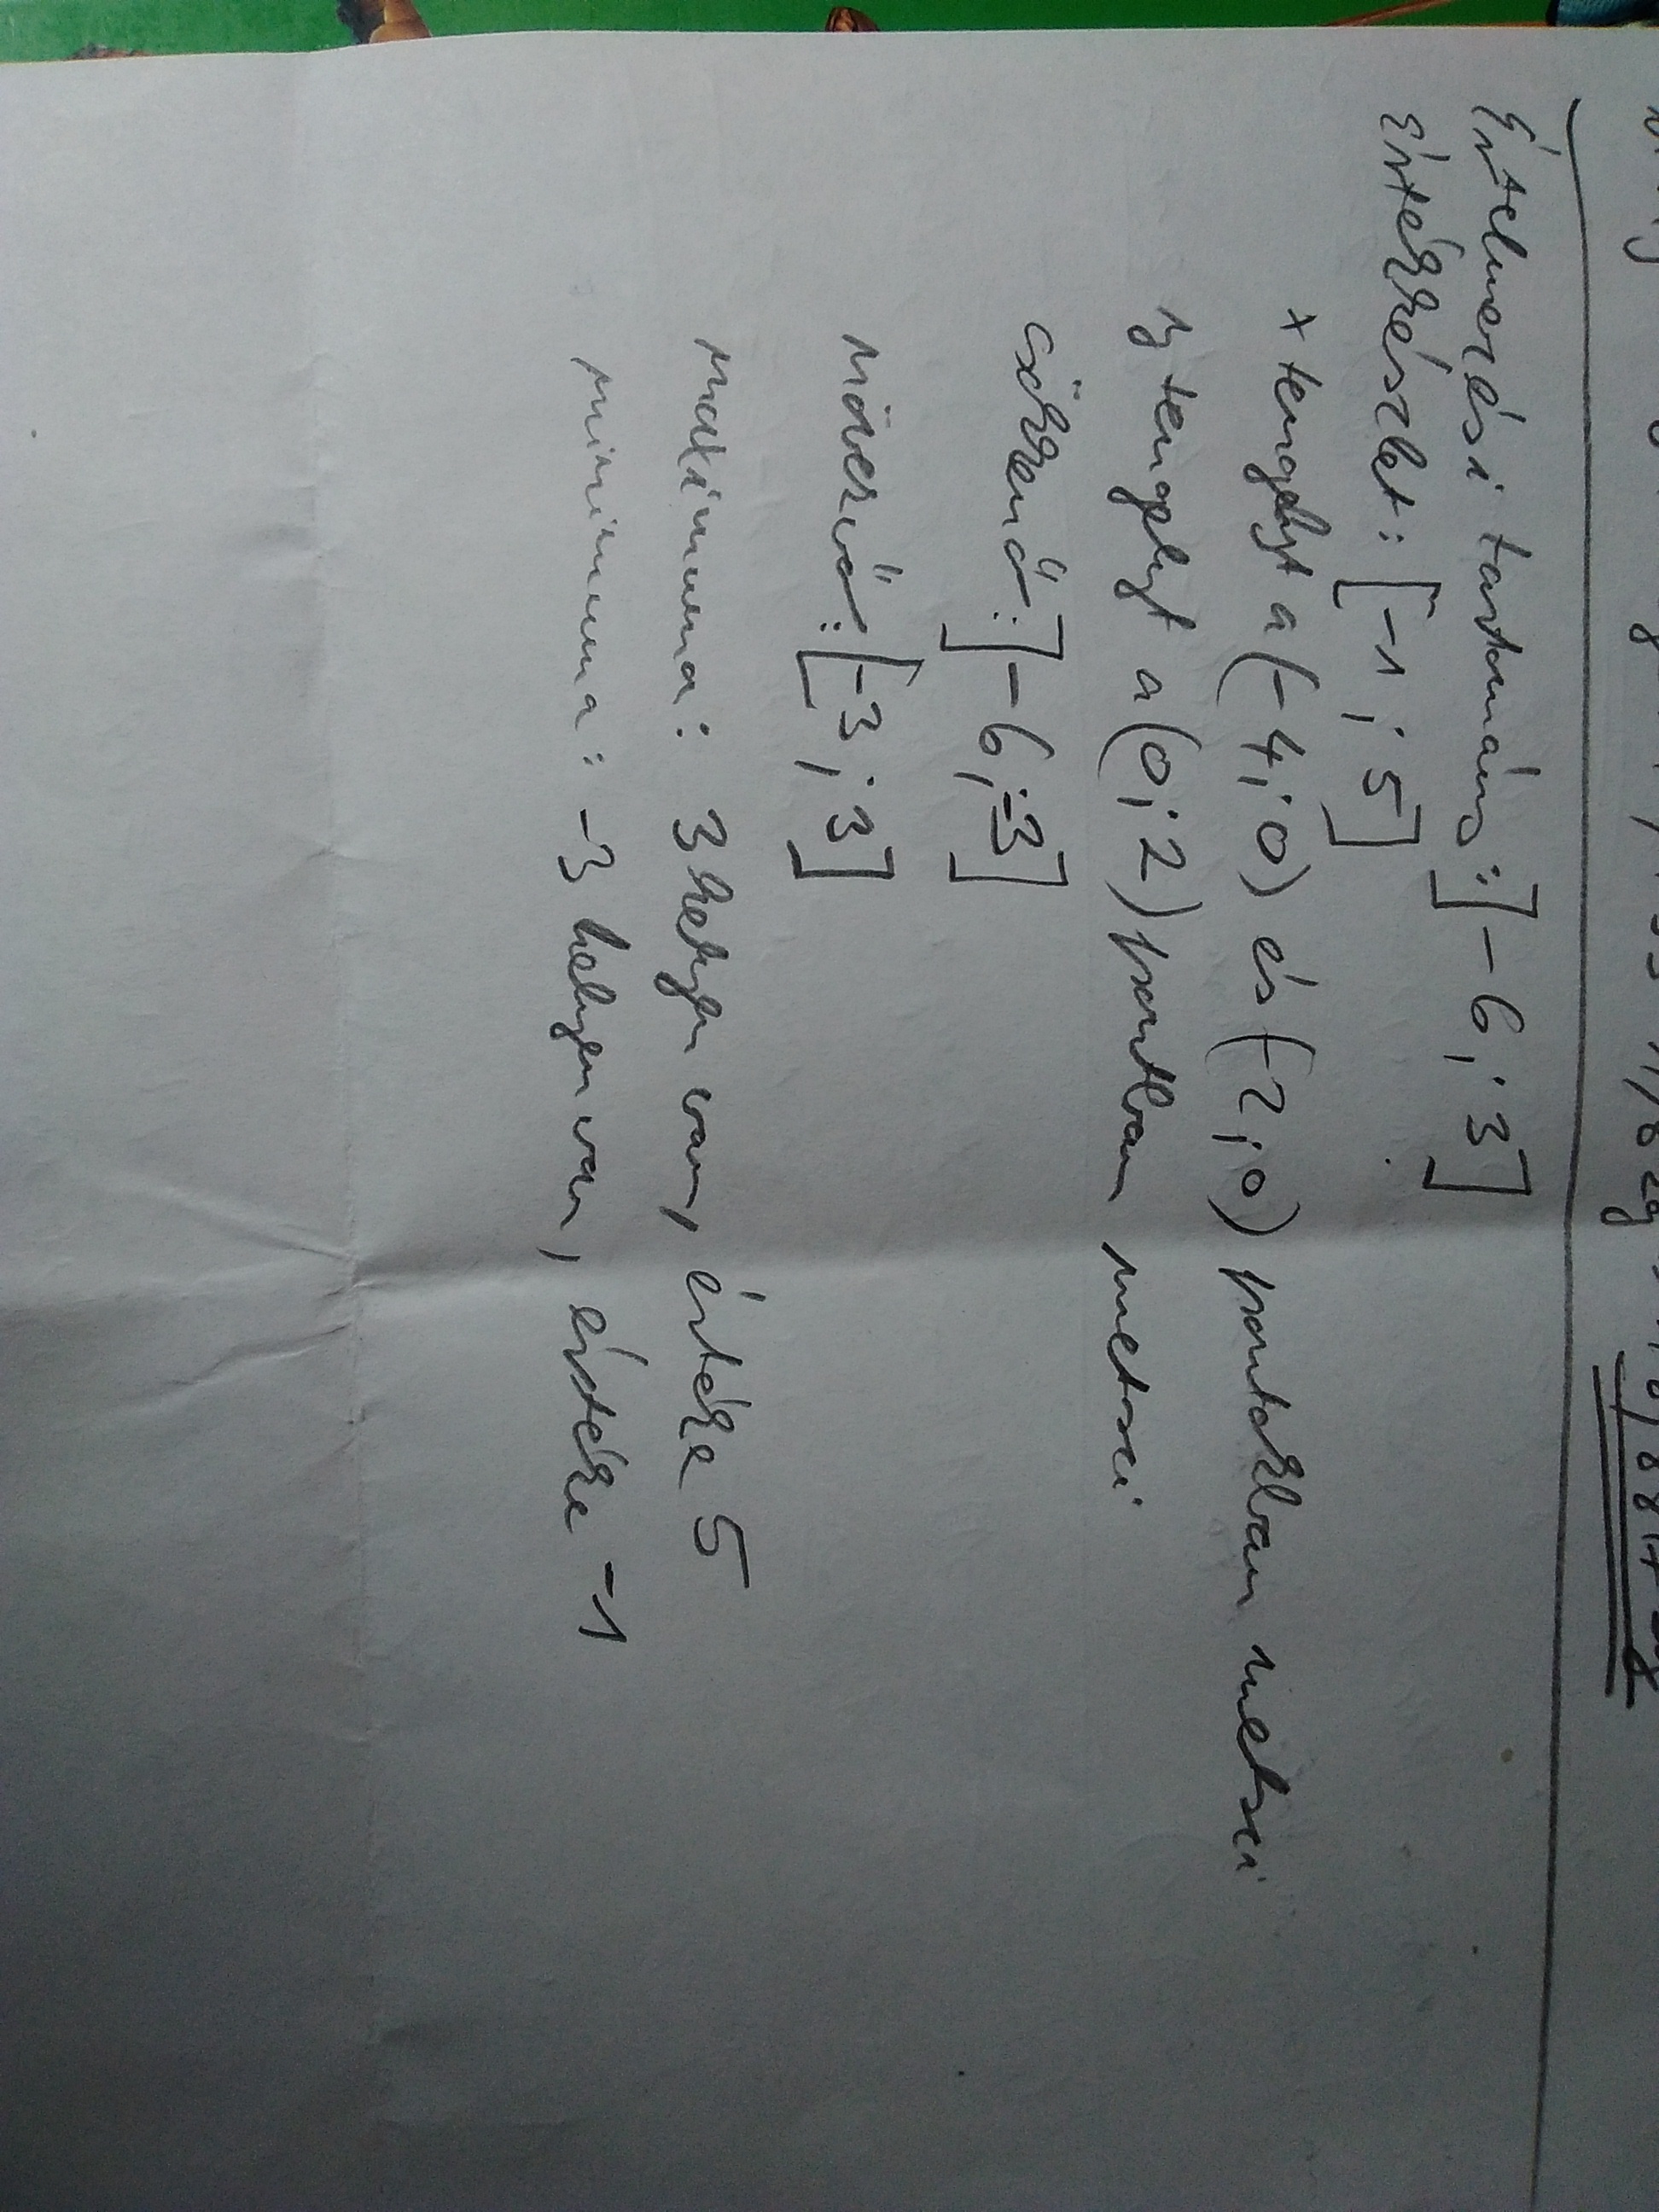 Értelmezési tartomány: ]-6; 3]
Értékkészlet: [-1; 5]
x tengelyt a (-4; 0) és (-2; 0) pontokban metszi
y tengelyt a (0; 2) pontban metszi
csökkenő: ]-6; -3]
növekvő: [-3; 3]
maximuma: 3 helyen van, értéke 5
minimuma: -3 helyen van, értéke -1